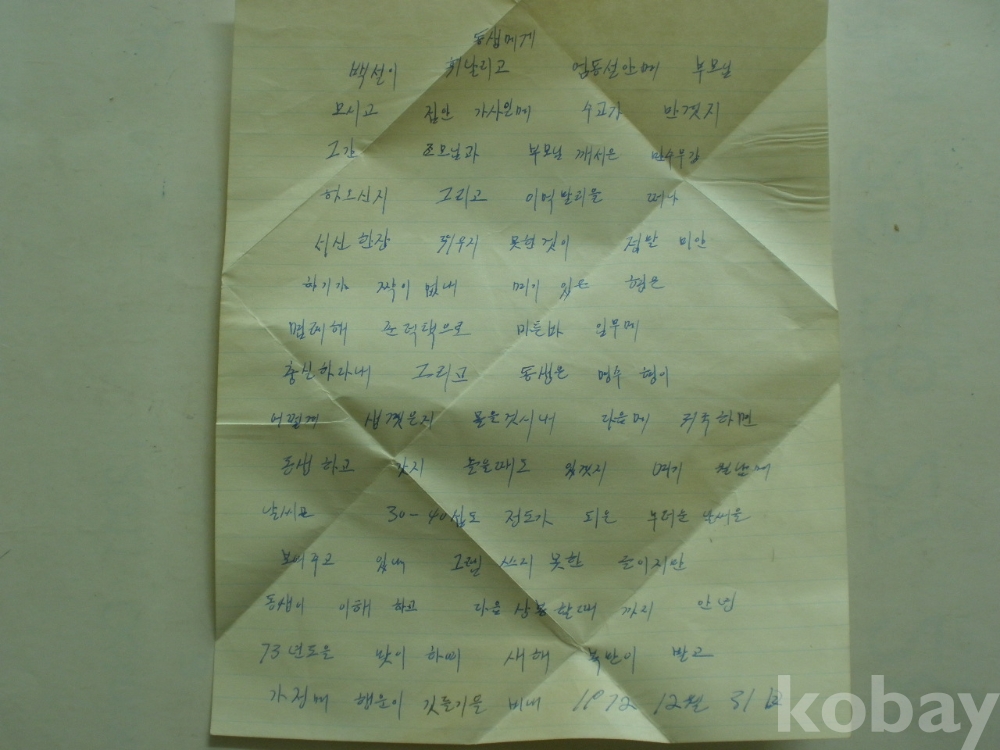 동생에게
백설이 휘날리고 엄동설안에 부모님
모시고 집안 가사일에 수고가 만겟지
그간 조모님과 부모님 깨서은 만수무강
하으신지 그리고 이역만리을 떠나
서신 한장 뛰우지 못한것이 정말 미안
하기가 짝이 없내 여이 있은 형은
염예해 준 덕택으로 마튼바 임무에
충신하라내 그리고 동생은 영수 형이
어떻게 생겻은지 몰을것시내 다음에 귀국하면
동생하고 갓지 놀을때도 있겟지 여기 월남에
날씨은 30-40십도 정도가 되은 무더운 날씨을
보여주고 있내 그럼 쓰지 못한 글이지만
동생이 이해 하고 다음 상봉 할때 까지 안녕
73년도을 맞이 하며 새해 복만이 받고
가정에 행운이 깃들기를 비내 1972 12월 31일
kobay